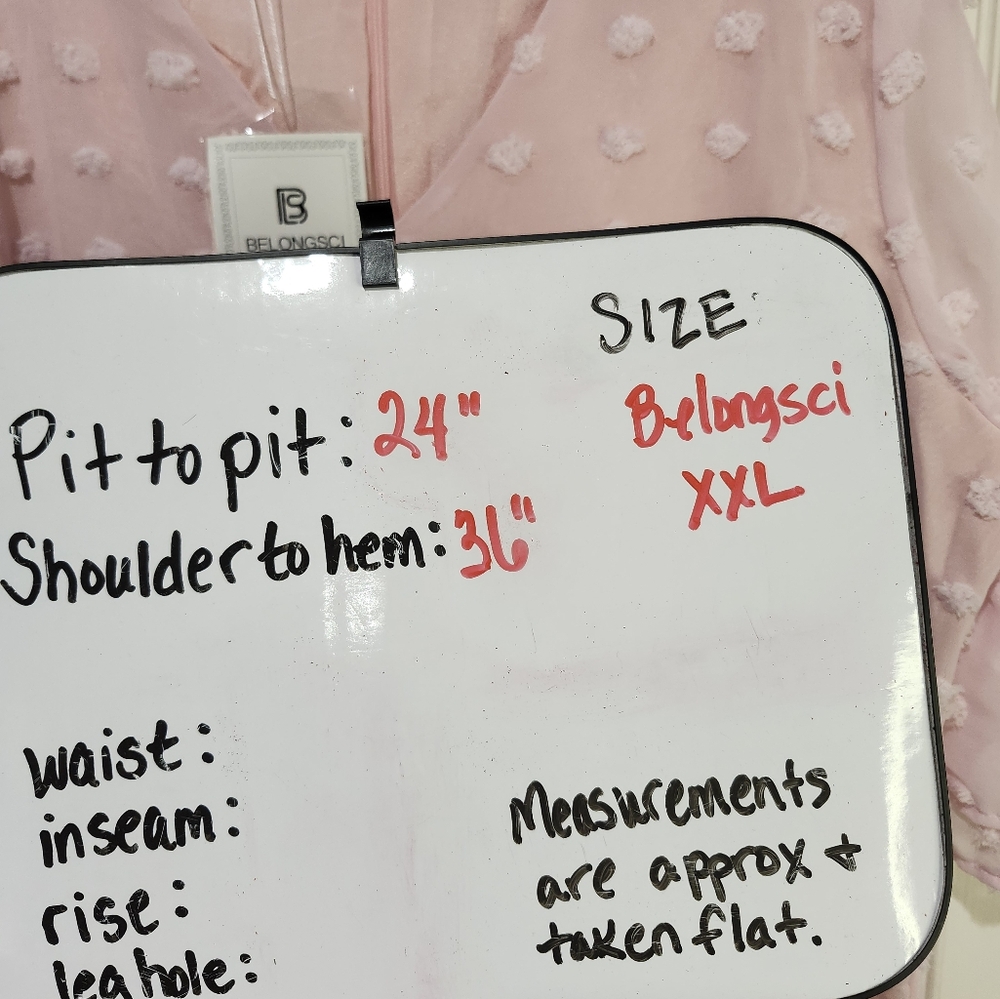 B
BELONGSCI
SIZE
Belongsci
XXL
Pit to pit: 24"
Shoulder to hem: 36"
waist:
inseam:
rise:
leg hole:
Measurements
are approx +
taken flat.